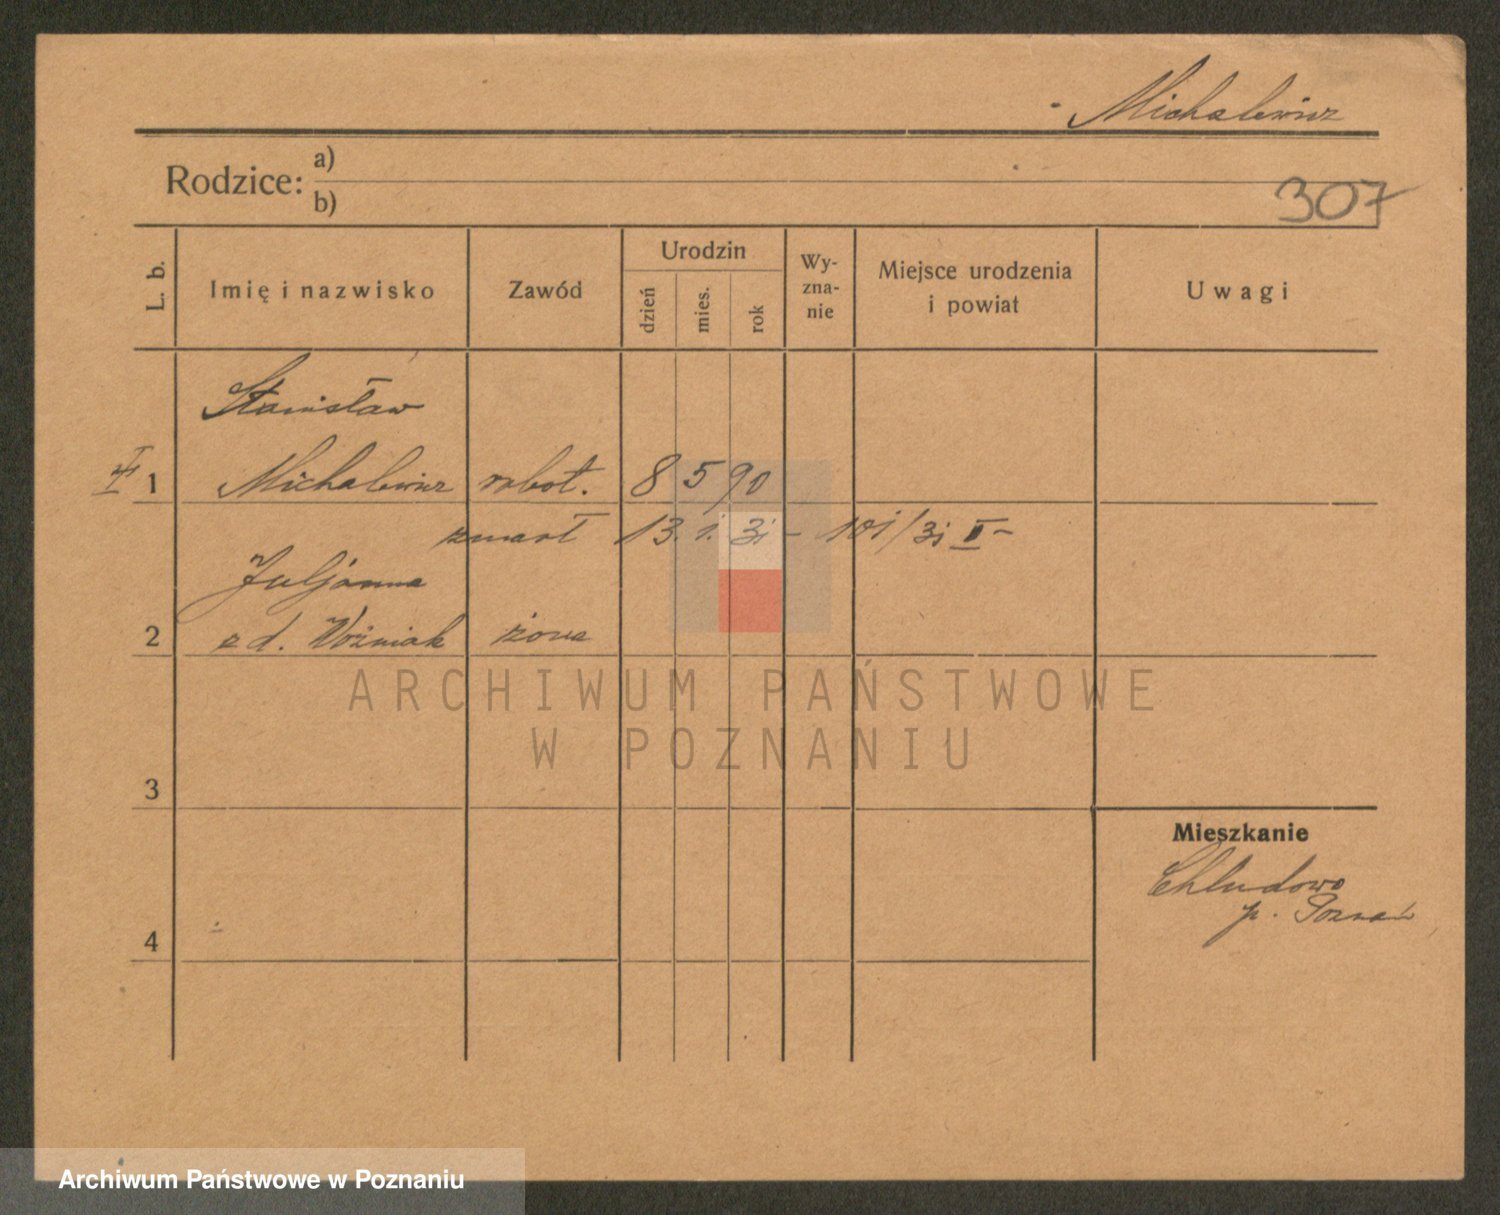 Michalewicz
Rodzice: a)
b)
307
L. b.
Imię i nazwisko
Zawód
Urodzin
dzień
mies.
rok
Wy-
zna-
nie
Miejsce urodzenia
i powiat
Uwagi
Stanisław
1 Michalewicz robot. 8 5 90
zmarł 13. 1. 31 - 101/31 II -
Juljanna
2 z d. Woźniak żona
ARCHIWUM PAŃSTWOWE
W POZNANIU
3
Mieszkanie
Chludowo
p. Poznań
4
Archiwum Państwowe w Poznaniu